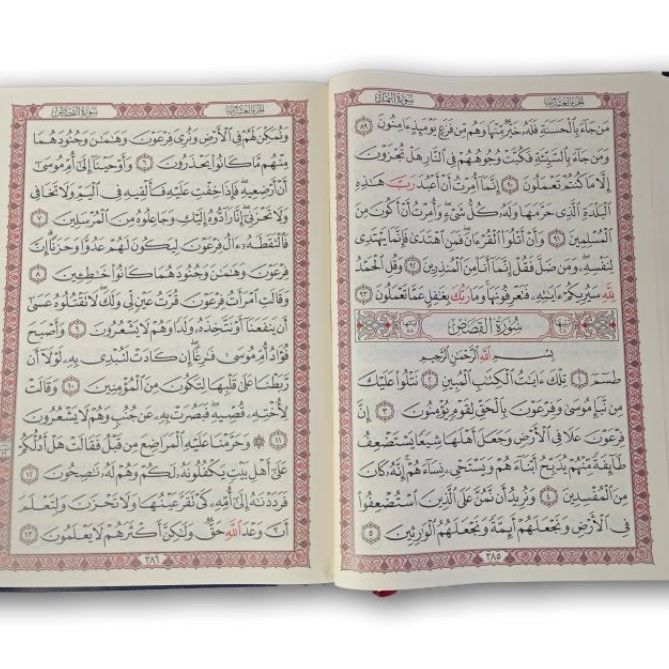 سورة النمل
الجزء العشرون
مَن جَآءَ بِٱلْحَسَنَةِ فَلَهُۥ خَيْرٌ مِّنْهَا وَهُم مِّن فَزَعٍ يَوْمَئِذٍ ءَامِنُونَ ٨٩
وَمَن جَآءَ بِٱلسَّيِّئَةِ فَكُبَّتْ وُجُوهُهُمْ فِى ٱلنَّارِ هَلْ تُجْزَوْنَ
إِلَّا مَا كُنتُمْ تَعْمَلُونَ ٩٠ إِنَّمَآ أُمِرْتُ أَنْ أَعْبُدَ رَبَّ هَٰذِهِ
ٱلْبَلْدَةِ ٱلَّذِى حَرَّمَهَا وَلَهُۥ كُلُّ شَىْءٍ وَأُمِرْتُ أَنْ أَكُونَ مِنَ
ٱلْمُسْلِمِينَ ٩١ وَأَنْ أَتْلُوَا۟ ٱلْقُرْءَانَ فَمَنِ ٱهْتَدَىٰ فَإِنَّمَا يَهْتَدِى
لِنَفْسِهِۦ وَمَن ضَلَّ فَقُلْ إِنَّمَآ أَنَا۠ مِنَ ٱلْمُنذِرِينَ ٩٢ وَقُلِ ٱلْحَمْدُ
لِلَّهِ سَيُرِيكُمْ ءَايَٰتِهِۦ فَتَعْرِفُونَهَا وَمَا رَبُّكَ بِغَٰفِلٍ عَمَّا تَعْمَلُونَ ٩٣
سُورَةُ القَصَصِ
بِسْمِ ٱللَّهِ ٱلرَّحْمَٰنِ ٱلرَّحِيمِ
طسٓمٓ ١ تِلْكَ ءَايَٰتُ ٱلْكِتَٰبِ ٱلْمُبِينِ ٢ نَتْلُوا۟ عَلَيْكَ
مِن نَّبَإِ مُوسَىٰ وَفِرْعَوْنَ بِٱلْحَقِّ لِقَوْمٍ يُؤْمِنُونَ ٣ إِنَّ
فِرْعَوْنَ عَلَا فِى ٱلْأَرْضِ وَجَعَلَ أَهْلَهَا شِيَعًا يَسْتَضْعِفُ
طَآئِفَةً مِّنْهُمْ يُذَبِّحُ أَبْنَآءَهُمْ وَيَسْتَحْىِۦ نِسَآءَهُمْ إِنَّهُۥ كَانَ
مِنَ ٱلْمُفْسِدِينَ ٤ وَنُرِيدُ أَن نَّمُنَّ عَلَى ٱلَّذِينَ ٱسْتُضْعِفُوا۟
فِى ٱلْأَرْضِ وَنَجْعَلَهُمْ أَئِمَّةً وَنَجْعَلَهُمُ ٱلْوَٰرِثِينَ ٥
٣٨٥
سورة القصص
الجزء العشرون
وَنُمَكِّنَ لَهُمْ فِى ٱلْأَرْضِ وَنُرِىَ فِرْعَوْنَ وَهَٰمَٰنَ وَجُنُودَهُمَا
مِنْهُم مَّا كَانُوا۟ يَحْذَرُونَ ٦ وَأَوْحَيْنَآ إِلَىٰٓ أُمِّ مُوسَىٰٓ
أَنْ أَرْضِعِيهِ فَإِذَا خِفْتِ عَلَيْهِ فَأَلْقِيهِ فِى ٱلْيَمِّ وَلَا تَخَافِى
وَلَا تَحْزَنِىٓ إِنَّا رَآدُّوهُ إِلَيْكِ وَجَاعِلُوهُ مِنَ ٱلْمُرْسَلِينَ ٧
فَٱلْتَقَطَهُۥٓ ءَالُ فِرْعَوْنَ لِيَكُونَ لَهُمْ عَدُوًّا وَحَزَنًا إِنَّ
فِرْعَوْنَ وَهَٰمَٰنَ وَجُنُودَهُمَا كَانُوا۟ خَٰطِـِٔينَ ٨
وَقَالَتِ ٱمْرَأَتُ فِرْعَوْنَ قُرَّتُ عَيْنٍ لِّى وَلَكَ لَا تَقْتُلُوهُ عَسَىٰٓ
أَن يَنفَعَنَآ أَوْ نَتَّخِذَهُۥ وَلَدًا وَهُمْ لَا يَشْعُرُونَ ٩ وَأَصْبَحَ
فُؤَادُ أُمِّ مُوسَىٰ فَٰرِغًا إِن كَادَتْ لَتُبْدِى بِهِۦ لَوْلَآ أَن
رَّبَطْنَا عَلَىٰ قَلْبِهَا لِتَكُونَ مِنَ ٱلْمُؤْمِنِينَ ١٠ وَقَالَتْ
لِأُخْتِهِۦ قُصِّيهِ فَبَصُرَتْ بِهِۦ عَن جُنُبٍ وَهُمْ لَا يَشْعُرُونَ
١١ ۞ وَحَرَّمْنَا عَلَيْهِ ٱلْمَرَاضِعَ مِن قَبْلُ فَقَالَتْ هَلْ أَدُلُّكُمْ
عَلَىٰٓ أَهْلِ بَيْتٍ يَكْفُلُونَهُۥ لَكُمْ وَهُمْ لَهُۥ نَٰصِحُونَ ١٢
فَرَدَدْنَٰهُ إِلَىٰٓ أُمِّهِۦ كَىْ تَقَرَّ عَيْنُهَا وَلَا تَحْزَنَ وَلِتَعْلَمَ
أَنَّ وَعْدَ ٱللَّهِ حَقٌّ وَلَٰكِنَّ أَكْثَرَهُمْ لَا يَعْلَمُونَ ١٣
٣٨٦